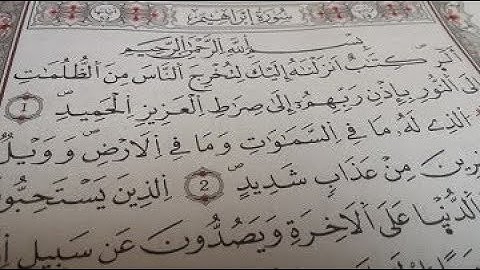 سُورَةُ إِبْرَاهِيمَ
بِسْمِ اللَّهِ الرَّحْمَٰنِ الرَّحِيمِ
أَلَٓر كِتَٰبٌ اَنزَلْنَٰهُ إِلَيْكَ لِتُخْرِجَ اَلنَّاسَ مِنَ اَلظُّلُمَٰتِ
إِلَى اَلنُّورِ بِإِذْنِ رَبِّهِمُۥٓ إِلَىٰ صِرَٰطِ اِلْعَزِيزِ اِلْحَمِيدِ 1
اَلذِے لَهُۥ مَا فِے اِلسَّمَٰوَٰتِ وَمَا فِے اِلَارْضِ وَوَيْلٌ
مِنْ عَذَابٍ شَدِيدٍ 2 اِلذِينَ يَسْتَحِبُّونَ
اَلدُّنْيَا عَلَى اَلَاخِرَةِ وَيَصُدُّونَ عَن سَبِيلِ